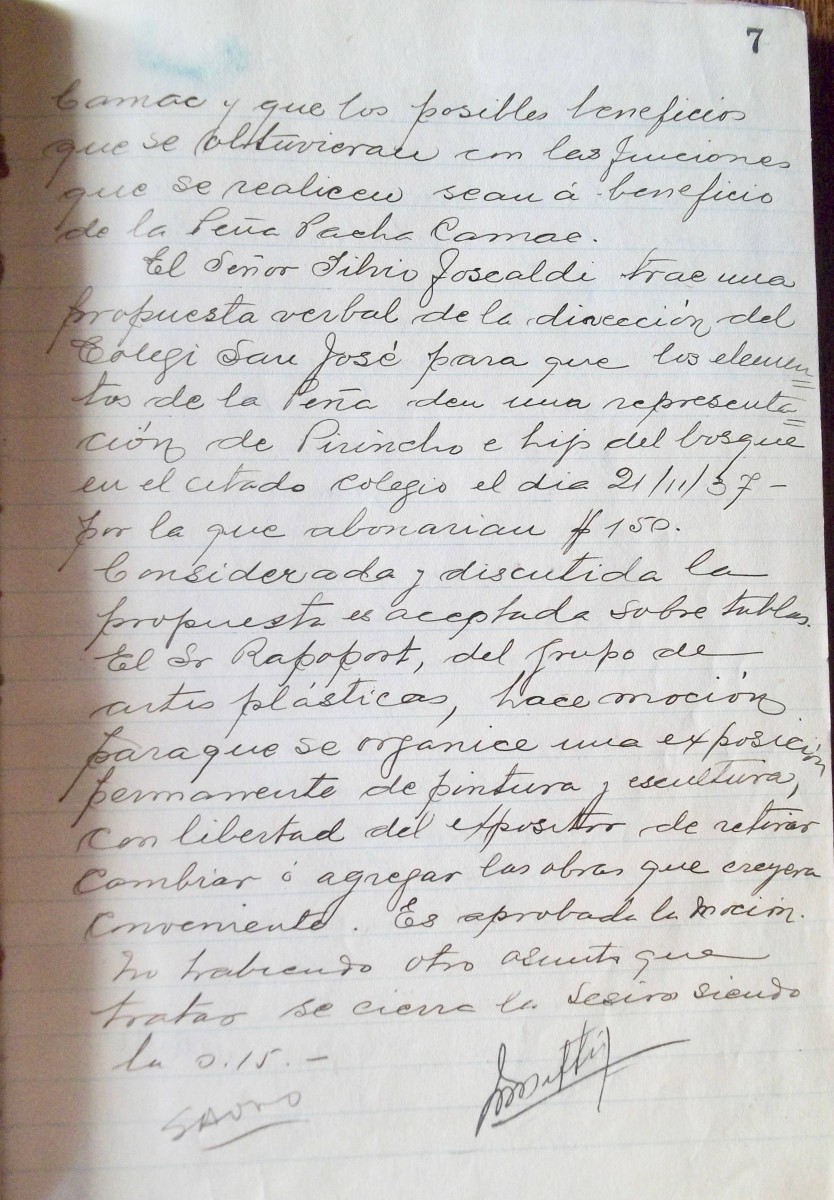 7
Camac y que los posibles beneficios
que se obtuvieran con las funciones
que se realicen sean á beneficio
de la Peña Pacha Camac.
El Señor Silvio Joscaldi trae una
propuesta verbal de la dirección del
Colegi San José para que los elemen=
tos de la Peña den una representa=
ción de Pirincho e hijo del bosque
en el citado colegio el dia 21/11/37 -
por la que abonarian $ 150.
Considerada y discutida la
propuesta es aceptada sobre tablas.
El Sr Rapoport, del grupo de
artes plásticas, hace moción
para que se organice una exposición
permanente de pintura y escultura,
con libertad del expositor de retirar
cambiar ó agregar las obras que creyera
conveniente. Es aprobada la moción.
No habiendo otro asunto que
tratar se cierra la sesión siendo
la 0.15. -